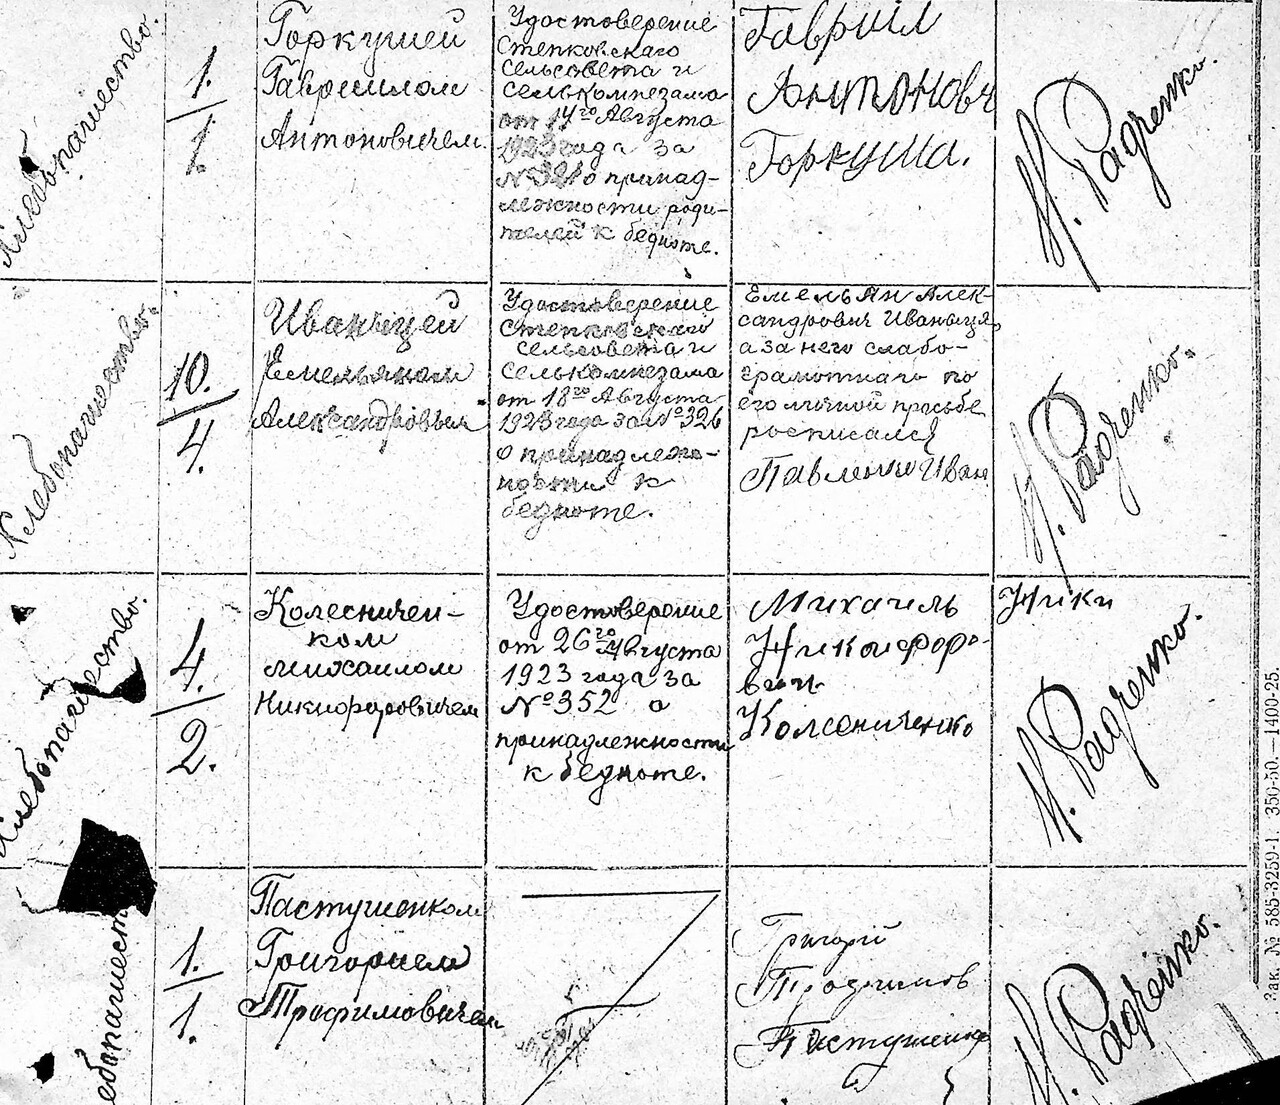 Хлебопашество.
1.
1.
Горкушей
Гавриилом
Антоновичем.
Удостоверение
Степковскаго
сельсовета и
селькомнезама
от 14го Августа
1923 года за
№ 321 о принад-
лежности роди-
телей к бедноте.
Гавриил
Антонович
Горкуша.
И. Радченко.
Хлебопашество.
10.
4.
Иваныцей
Емельяном
Александровичем
Удостоверение
Степковскаго
сельсовета и
селькомнезама
от 18го Августа
1923 года за № 326
о принадлеж-
ности к
бедноте.
Емельян Алек-
сандрович Иваныця,
а за него слабо-
грамотнаго по
его личной просьбе
росписался
Павленко Иван
И. Радченко.
Хлебопашество.
4.
2.
Колесничен-
ком
Михаилом
Никифоровичем
Удостоверение
от 26го Августа
1923 года за
№ 352 о
принадлежности
к бедноте.
Михаиль
Никифоро-
вич
Колсениченко
Ники
И. Радченко.
Хлебопашество
1.
1.
Пастушенком
Григорием
Трофимовичем
Григорий
Трофимов
Пастушенко
И. Радченко.
Зак. № 585-3259-1. 350-50.—1400-25.